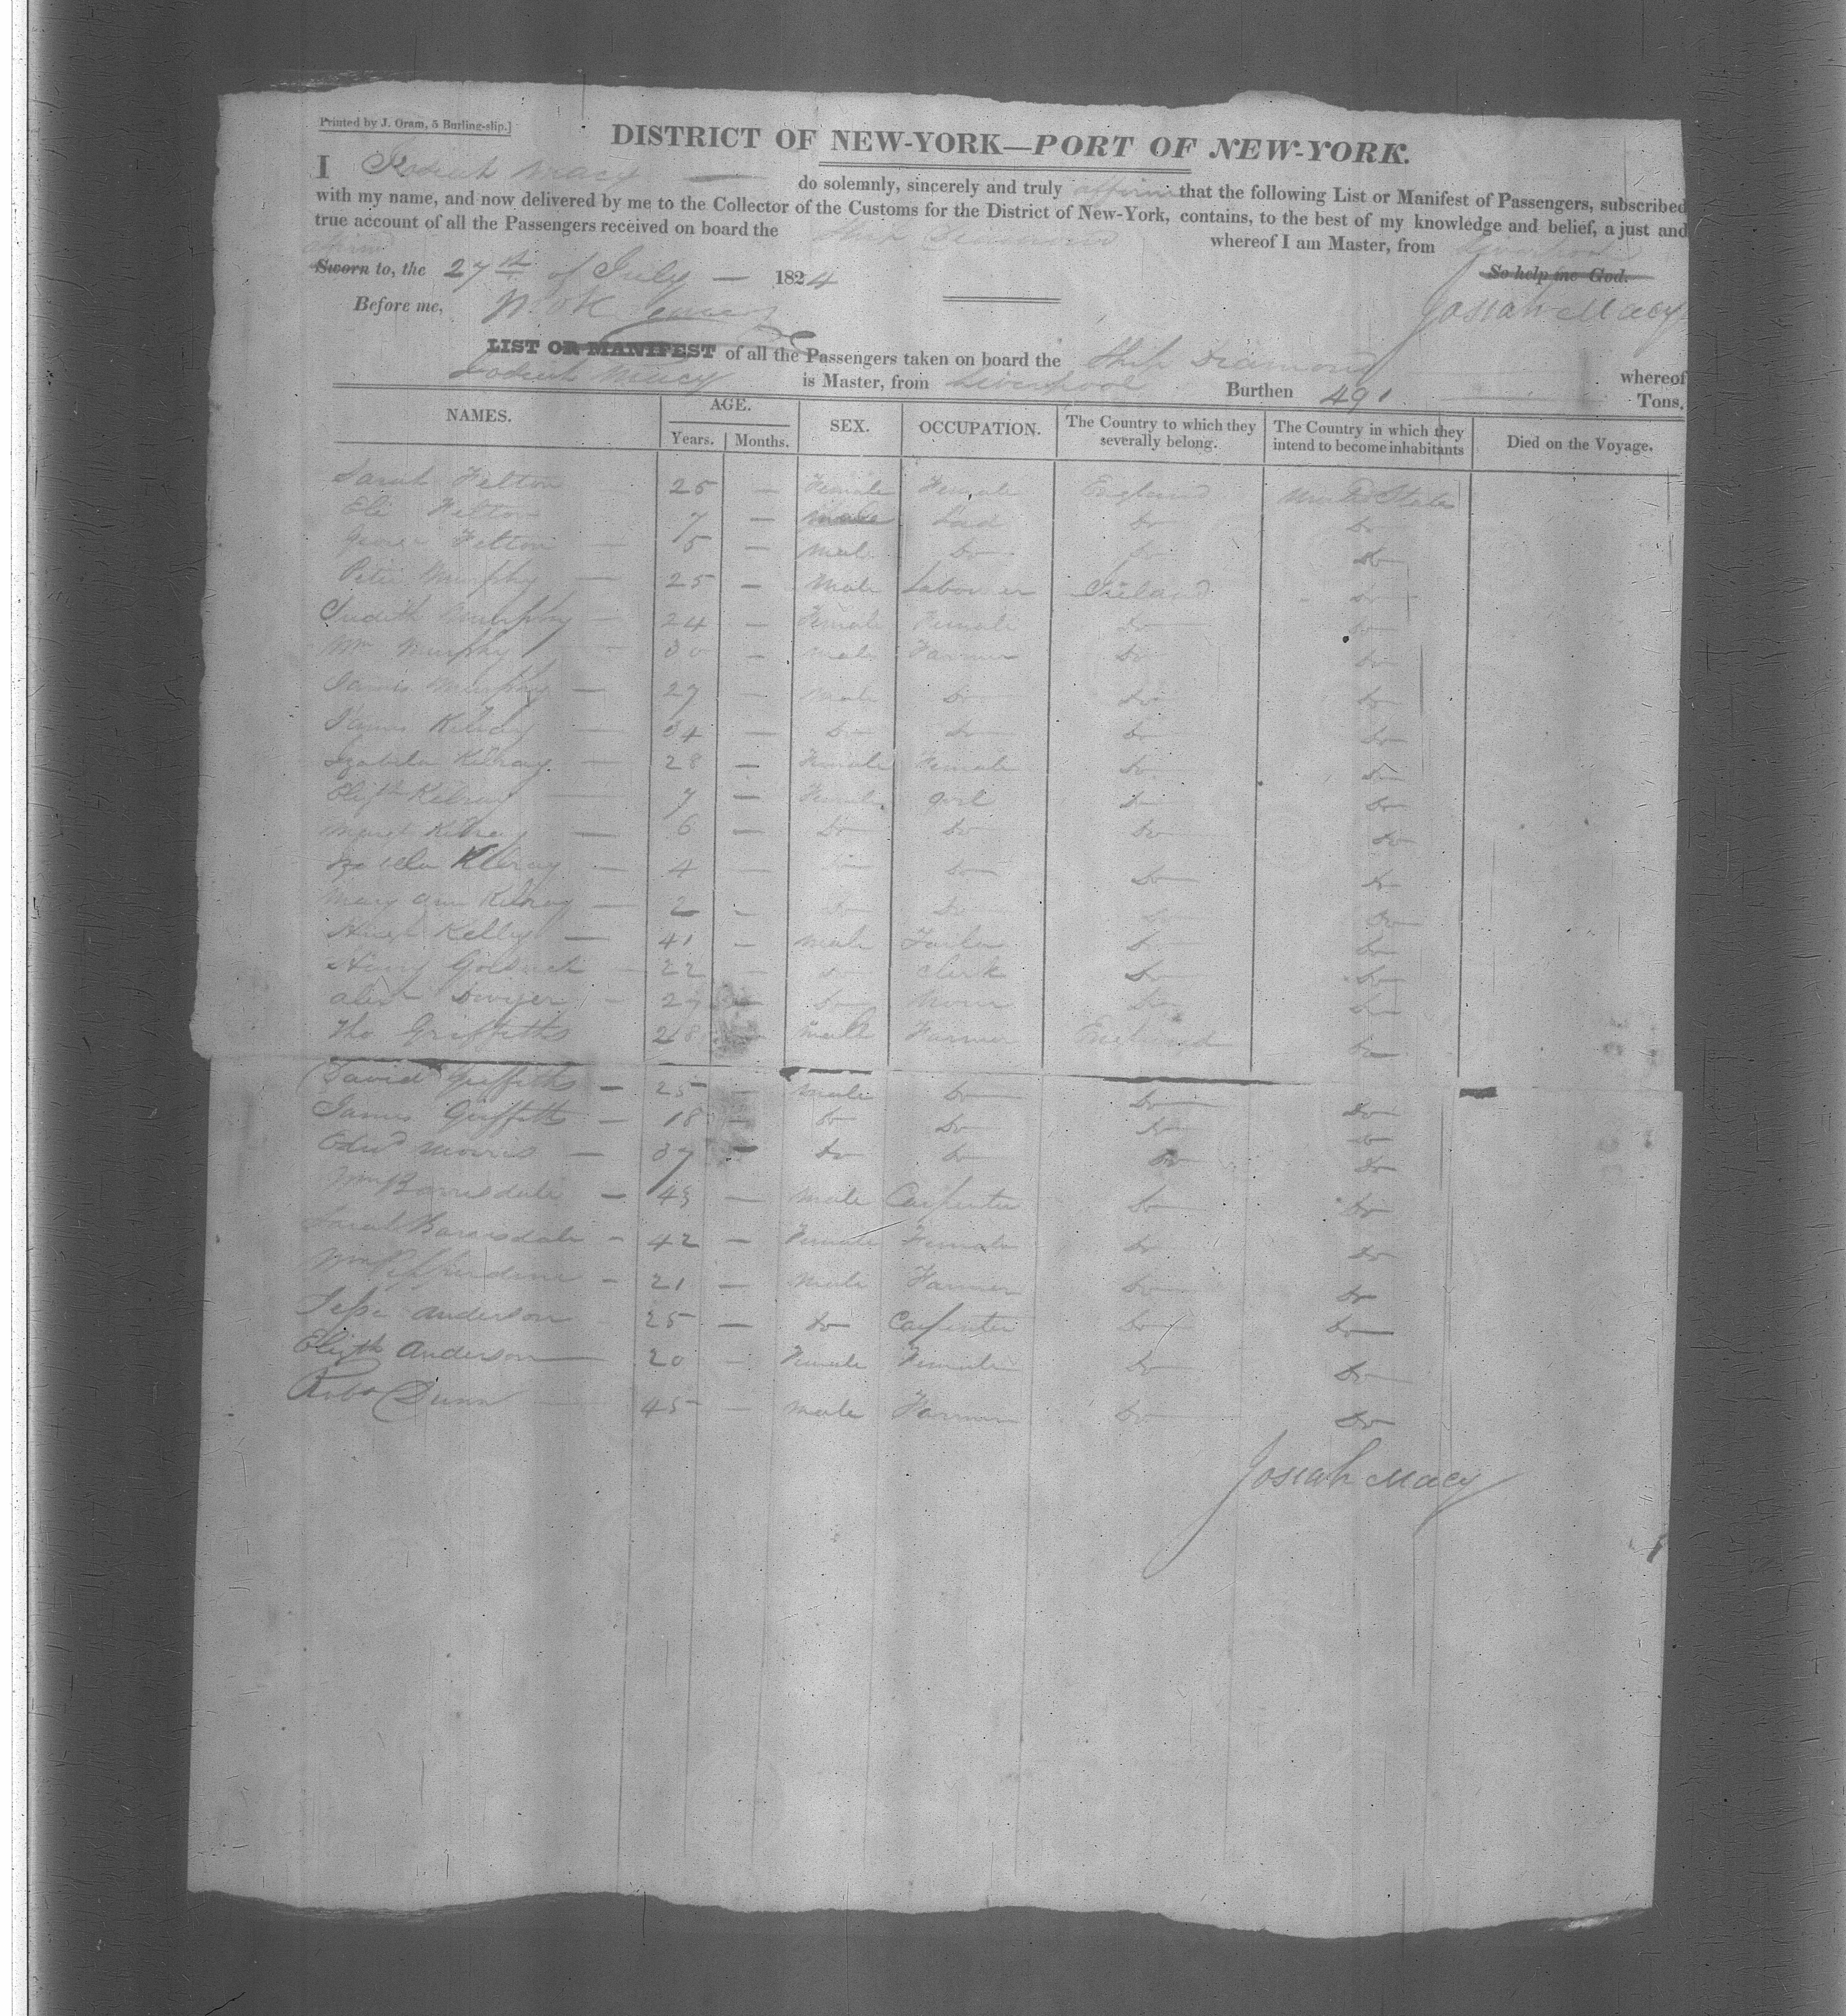 Printed by J. Oram, 5 Burling-slip.]
DISTRICT OF NEW-YORK—PORT OF NEW-YORK.
I Josiah Macy — do solemnly, sincerely and truly affirm that the following List or Manifest of Passengers, subscribed
with my name, and now delivered by me to the Collector of the Customs for the District of New-York, contains, to the best of my knowledge and belief, a just and
true account of all the Passengers received on board the Ship Diamond whereof I am Master, from Liverpool
affirm
Sworn to, the 27th of July — 1824 So help me God.
Before me, Josiah Macy
LIST OR MANIFEST of all the Passengers taken on board the Ship Diamond whereof
Josiah Macy is Master, from Liverpool Burthen 491 Tons.
NAMES. AGE. SEX. OCCUPATION. The Country to which they severally belong. The Country in which they intend to become inhabitants Died on the Voyage.
Years. Months.
Sarah Felton 25 — Female Female England United States
Eli Felton 7 — male Lad Do Do
George Felton — 5 — male Do Do Do
Peter Murphy — 25 — Male Labourer Ireland Do
Judith Murphy — 24 — Female Female Do Do
Wm Murphy — 30 — male Farmer Do Do
James Murphy — 27 — male Do Do Do
James Kilroy — 34 — Do Do Do Do
Izabela Kilroy — 28 — Female Female Do Do
Elizth Kilroy — 7 — Female girl Do Do
Margt Kilroy — 6 — Do Do Do Do
Izabela Kilroy — 4 — Do Do Do Do
Mary ann Kilroy — 2 — Do Do Do Do
Hugh Kelly — 41 — male Do Do
Henry — 22 — Do Clerk Do Do
Alexr Dwyer — 27 — Do None Do Do
Tho Griffiths 28 — male Farmer England Do
David Griffiths — 25 — male Do Do Do
James Griffith — 18 — Do Do Do Do
Edwd Morris — 37 — Do Do Do Do
Wm Barrisdale — 43 — male Carpenter Do Do
Sarah Barrisdale — 42 — Female Female Do Do
Wm — 21 — male Farmer Do Do
Jesse Anderson 25 — Do Carpenter Do Do
Elizth Anderson — 20 — Female Female Do Do
Robt Dunn — 45 — male Farmer Do Do
Josiah Macy